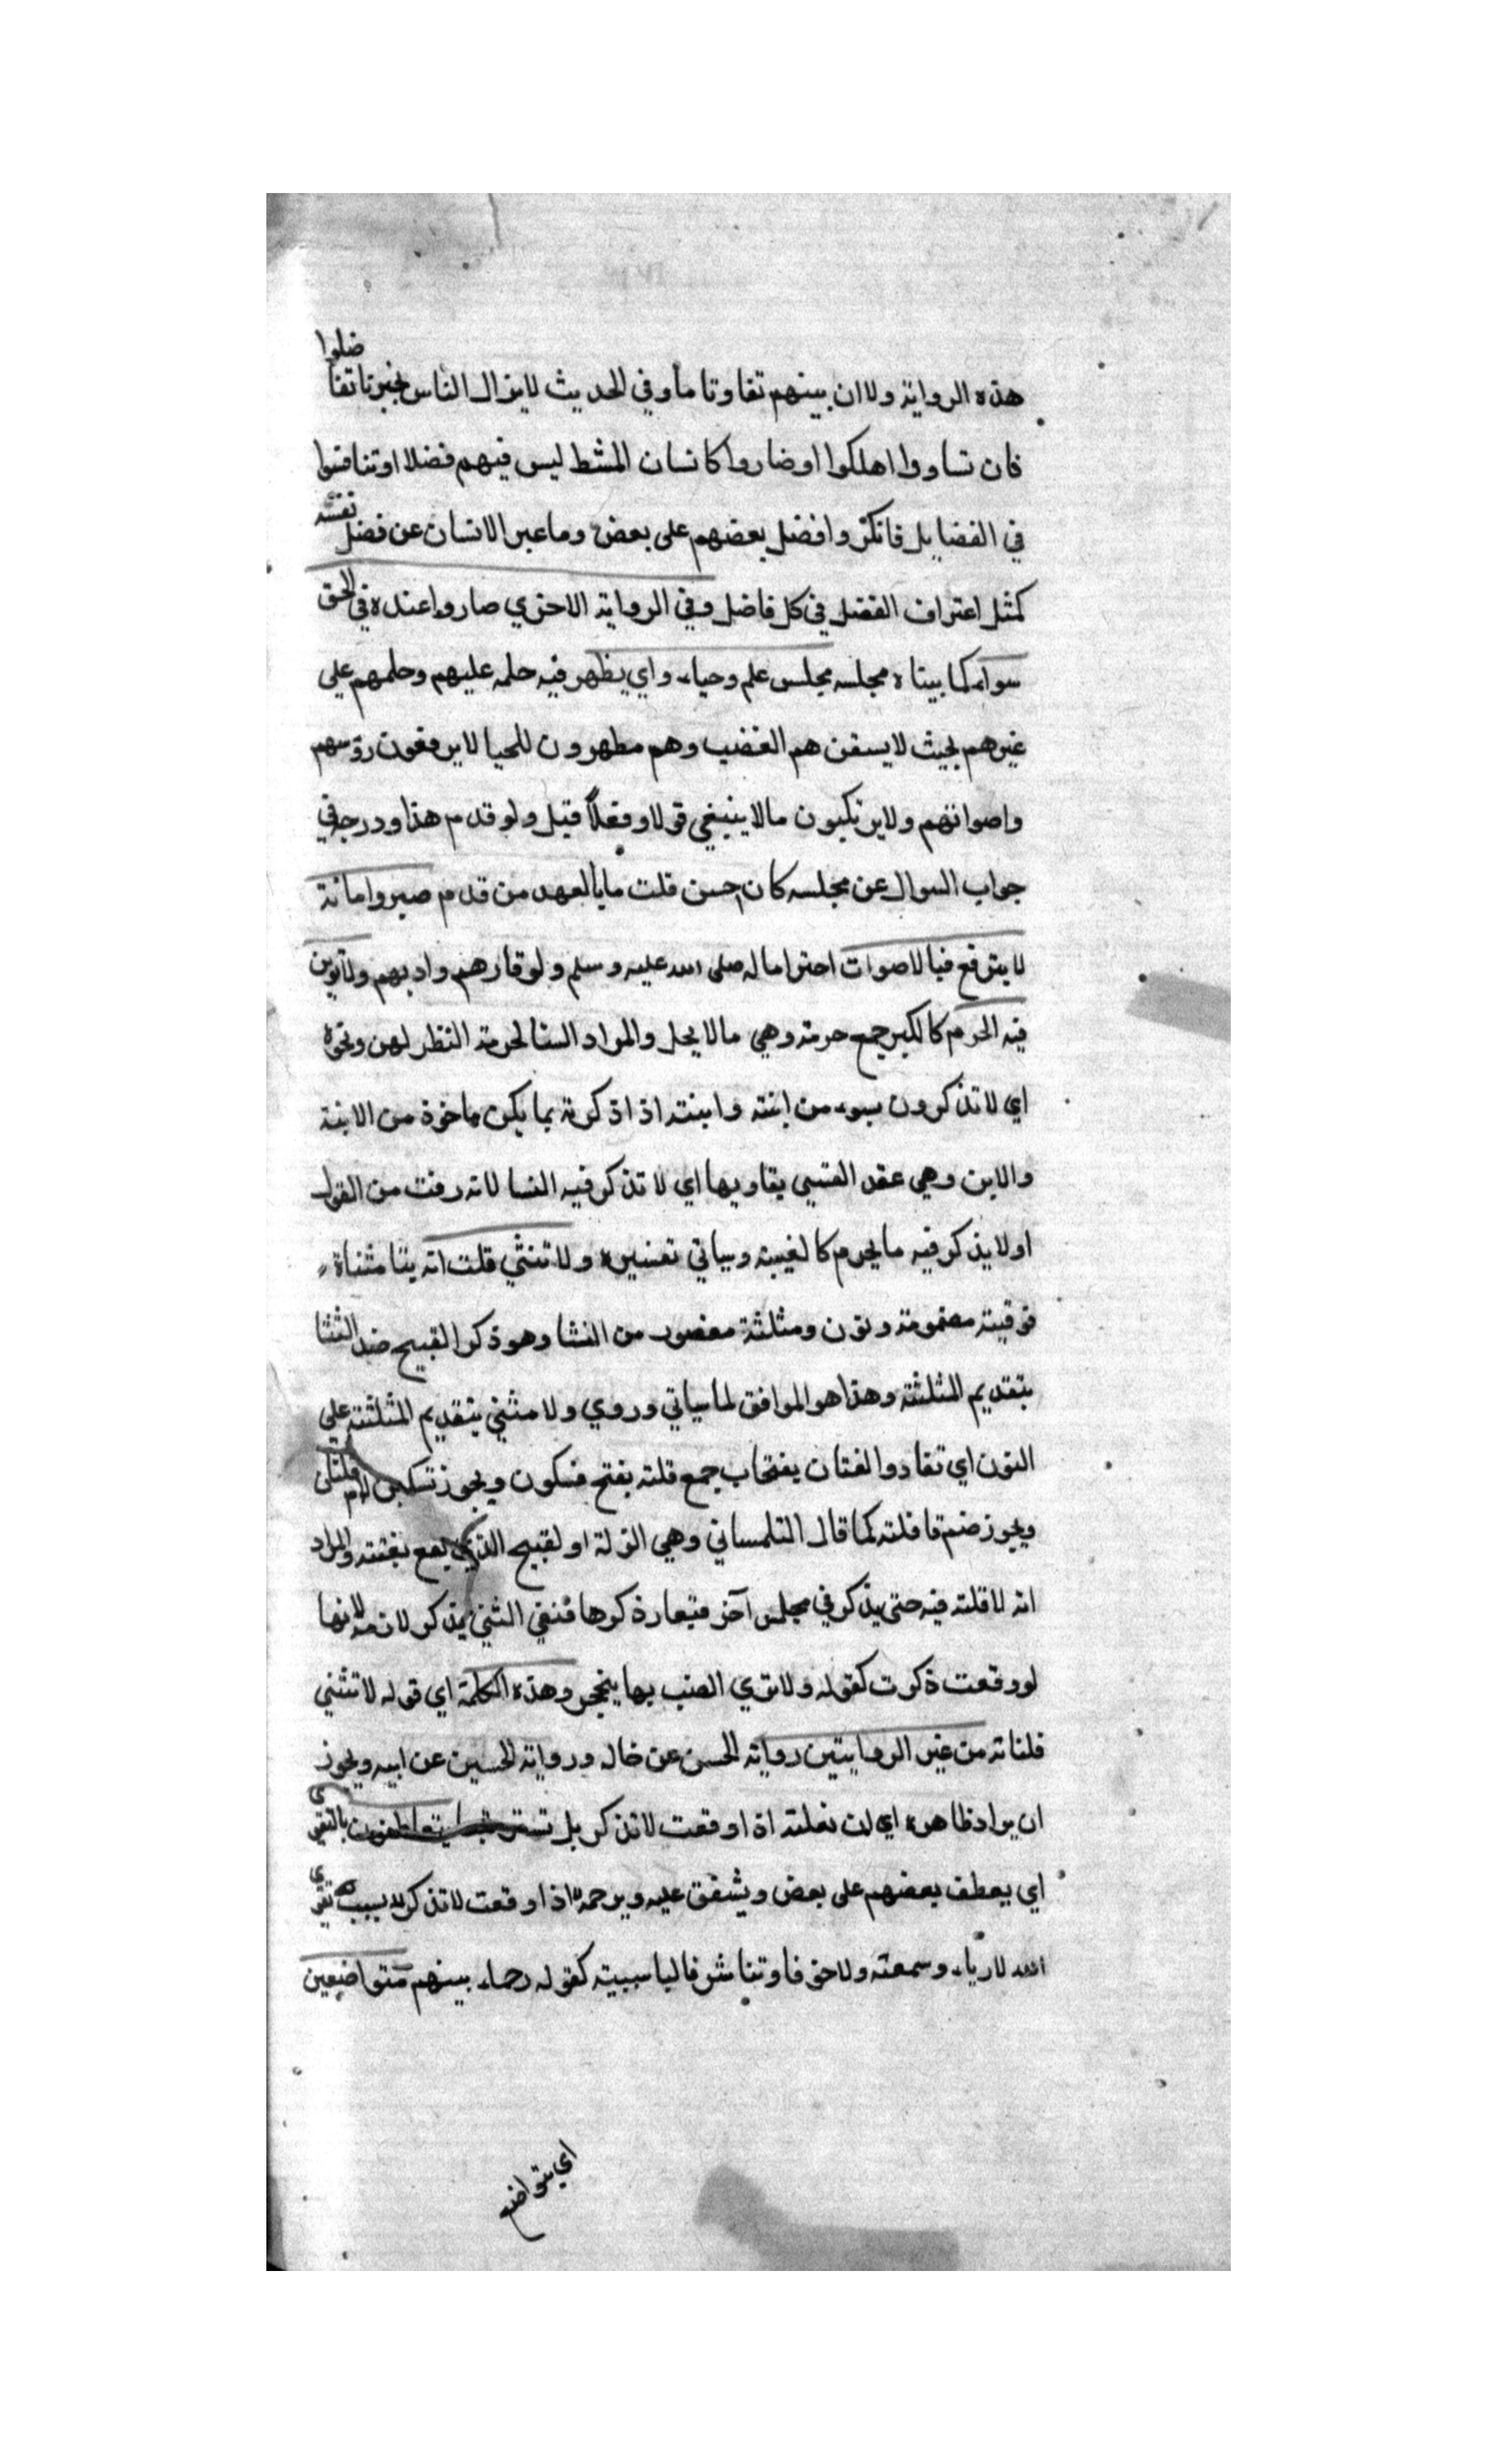 هذه الرواية ولا ان بينهم تفاوتا ما وفي الحديث لا يزال الناس بخير ما تفا ضلوا
فان تساووا اهلكوا اوضاروا كاسنان المشط ليس فيهم فضلا او تنافسوا
في الفضايل فانكروا فضل بعضهم على بعض وما عبر الانسان عن فضل نفسه
كمثل اعتراف الفضل في كل فاضل وفي الرواية الاخري صاروا عنده في الحق
سواء كما بيناه مجلسه مجلس علم وحياء واي يظهر فيه حلمه عليهم وحلمهم على
غيرهم بحيث لا يسفزهم الغضب وهم مطهرون للحيا لا يرفعون رؤسهم
واصواتهم ولا يرتكبون ما لا ينبغي قولا وفعلا قيل ولو قدم هذا ودرجه في
جواب السوال عن مجلسه كان احسن قلت ما بالعهد من قدم صبر وامانة
لا يترفع فيه الاصوات احتراما له صلى الله عليه وسلم ولوقارهم وادبهم ولا توبن
فيه الحرم كالكبر جمع حرمة وهي ما لا يحل والمراد النسا لحرمة النظر لهن ونحوه
اي لا تذكرون بسوء من ابنه وابنته اذا ذكرته بما يكن ماخوذ من الابنة
والابن وهي عقد القسي يقاويها اي لا تذكر فيه النسا لانه رفث من القول
او لا يذكر فيه ما يحرم كالغيبة وسياتي تفسيره ولا تنثي قلت اته بتا مثناة
فوقية مضمومة ونون ومثلثة مقصور من النثا وهو ذكر القبيح ضد الثنا
بتقديم المثلثة وهذا هو الموافق لما سياتي وروي ولا مثني بتقديم المثلثة على
النون اي تفادوا لفتان بفتحات جمع فلتة بفتح فسكون ويجوز تسكين لام فلتاتي
ويجوز ضم فا فلتة كما قال التلمساني وهي الزلة او لقبيح الذي يقع بغتة والمراد
انه لا فلتة فيه حتى يذكر في مجلس آخر فتعار ذكرها فنفي الثني يذكر لازمه لانها
لو وقعت ذكرت كقوله ولا تري الضب بها ينجحر وهذه الكلمة اي قوله لا تنثني
فلتاته من غير الروايتين رواية الحسن عن خاله ورواية الحسين عن ابيه ويجوز
ان يراد ظاهره اي ان فعلته اذا وقعت لا تذكر بل تستر يتعاطفون بالتقوي
اي يعطف بعضهم على بعض ويشفق عليه ويرحمه اذا وقعت لا تذكر بسبب تقوي
الله لا رياء وسمعة ولا خوفا وتناشر فالبا سببية كقوله رحماء بينهم متواضعين
اي يتواضع